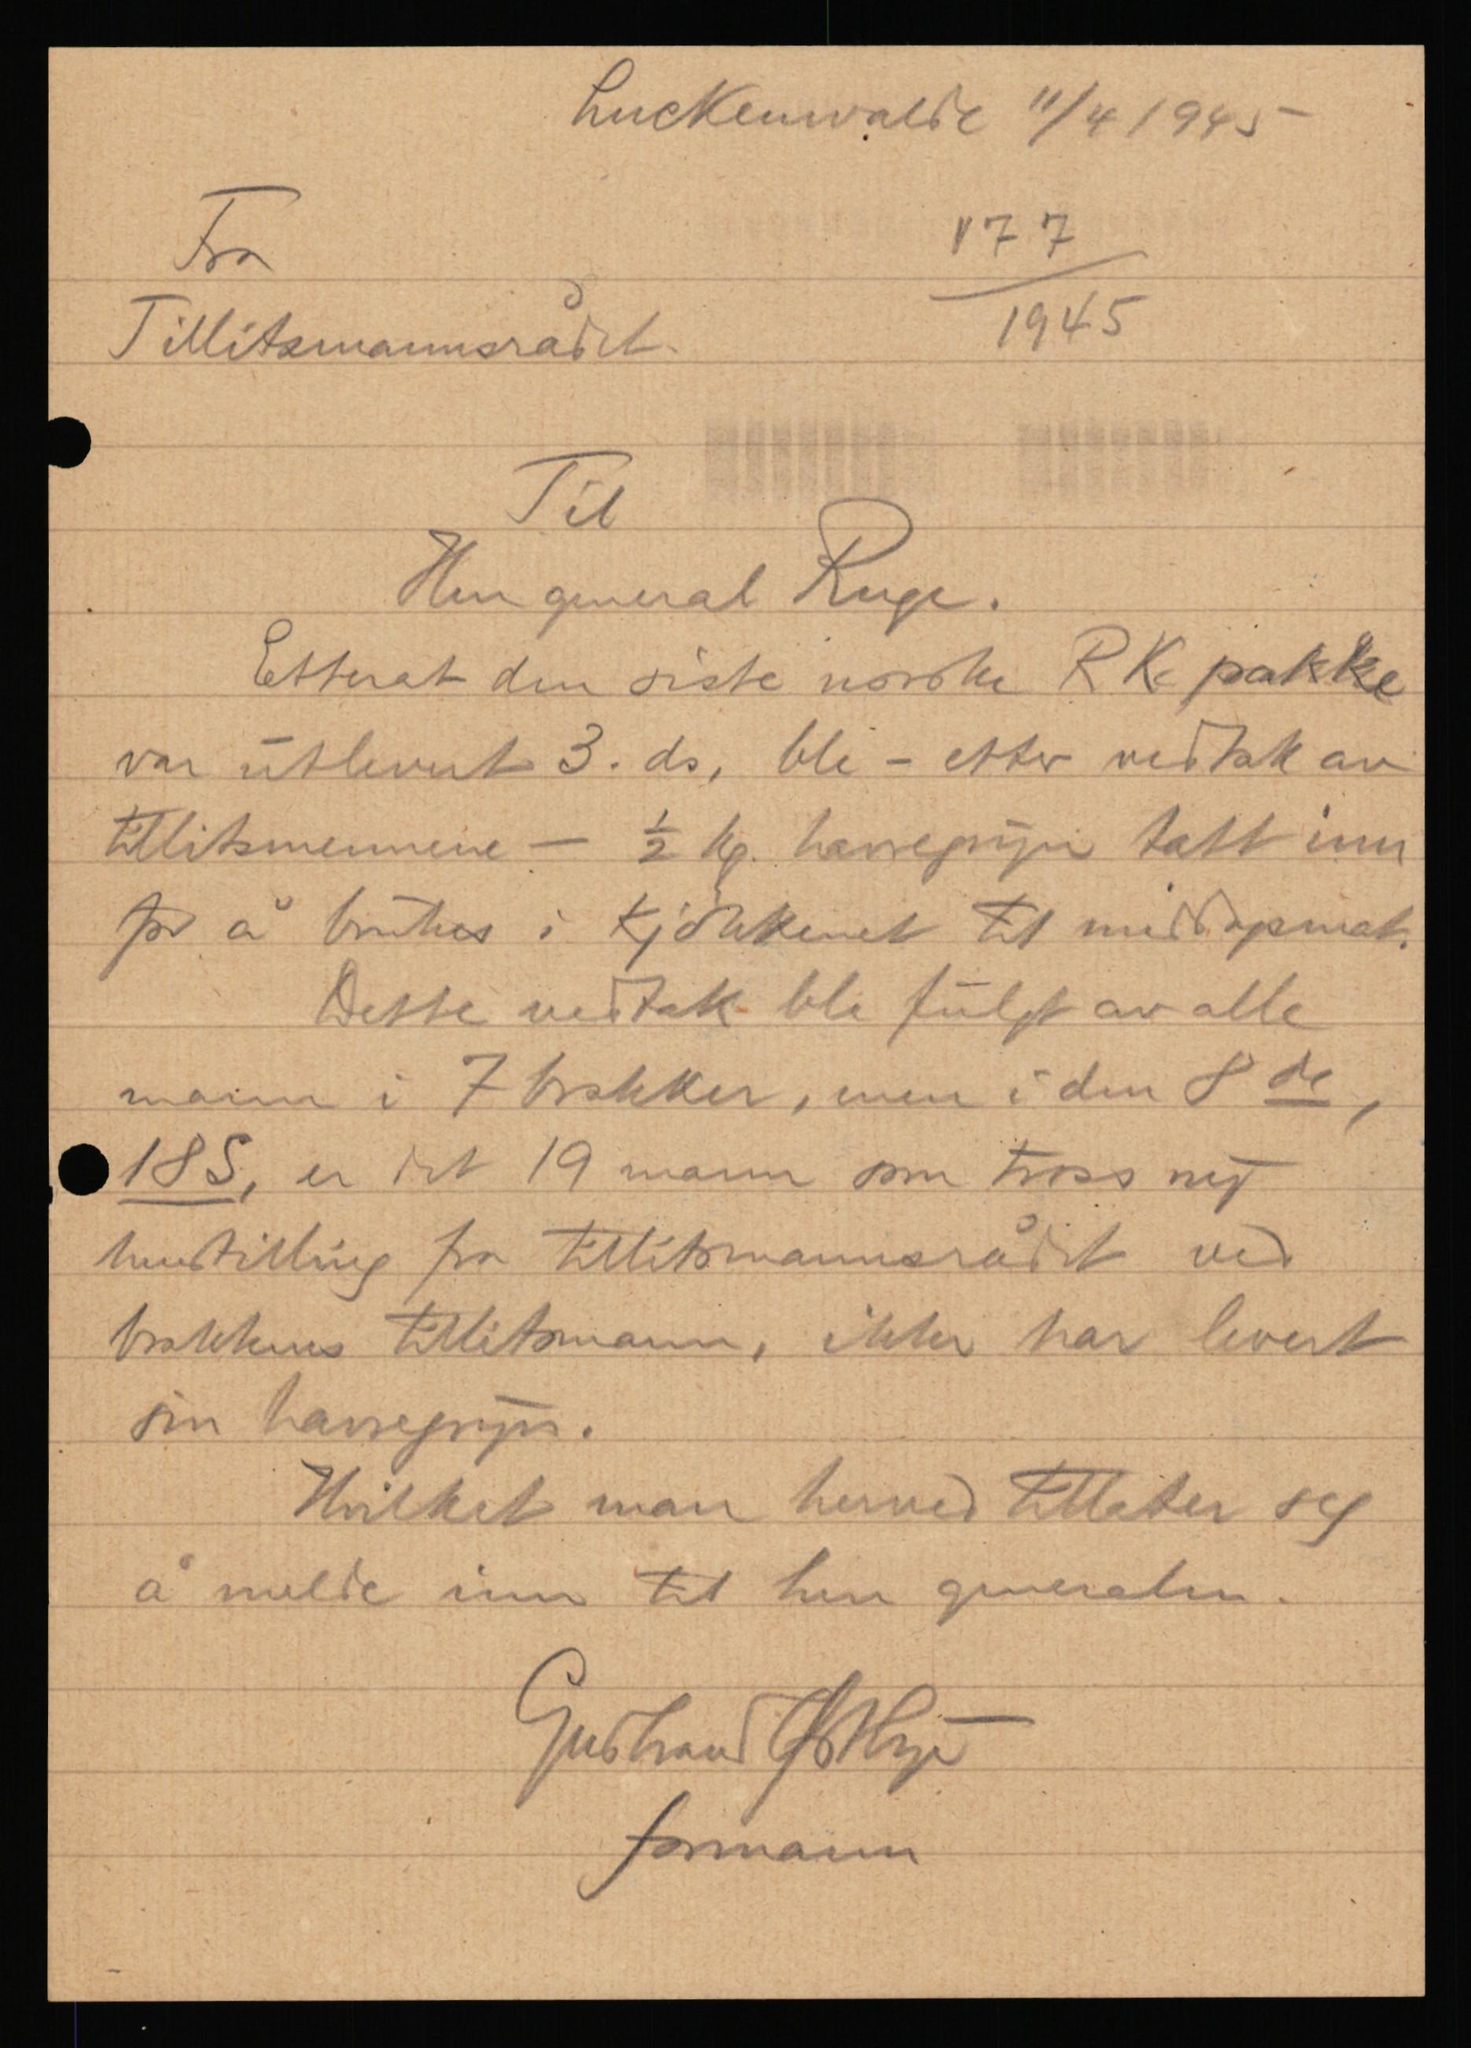 Luckenwalde 11/4 1945
Fra
177
1945
Tillitsmannsrådet.
Til
Herr general Ruge.
Etterat den siste norske R K. pakke
var utlevert 3. ds, ble - etter vedtak av
tillitsmennene - ½ kg. havregryn tatt inn
for å brukes i kjökkenet til middagsmat.
Dette vedtak ble fulgt av alle
mann i 7 brakker, men i den 8 de,
18S, er det 19 mann som tross ny
henstilling fra tillitsmannsrådet ved
brakkens tillitsmann, ikke har levert
sin havregryn.
Hvilket man herved tillater seg
å melde inn til herr generalen.
Gudbrand
formann